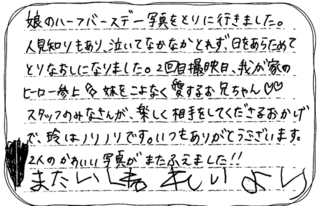 娘のハーフバースデー写真をとりに行きました。
人見知りもあり、泣いてなかなかとれず日をあらためて
とりなおしになりました。2回目撮影日、我が家の
ヒーロー参上 妹をこよなく愛するお兄ちゃん♡♡
スタッフのみなさんが、楽しく相手をしてくださるおかげ
で、玲はノリノリです。いつもありがとうございます。
2人のかわいい写真がまたふえました!!
またい